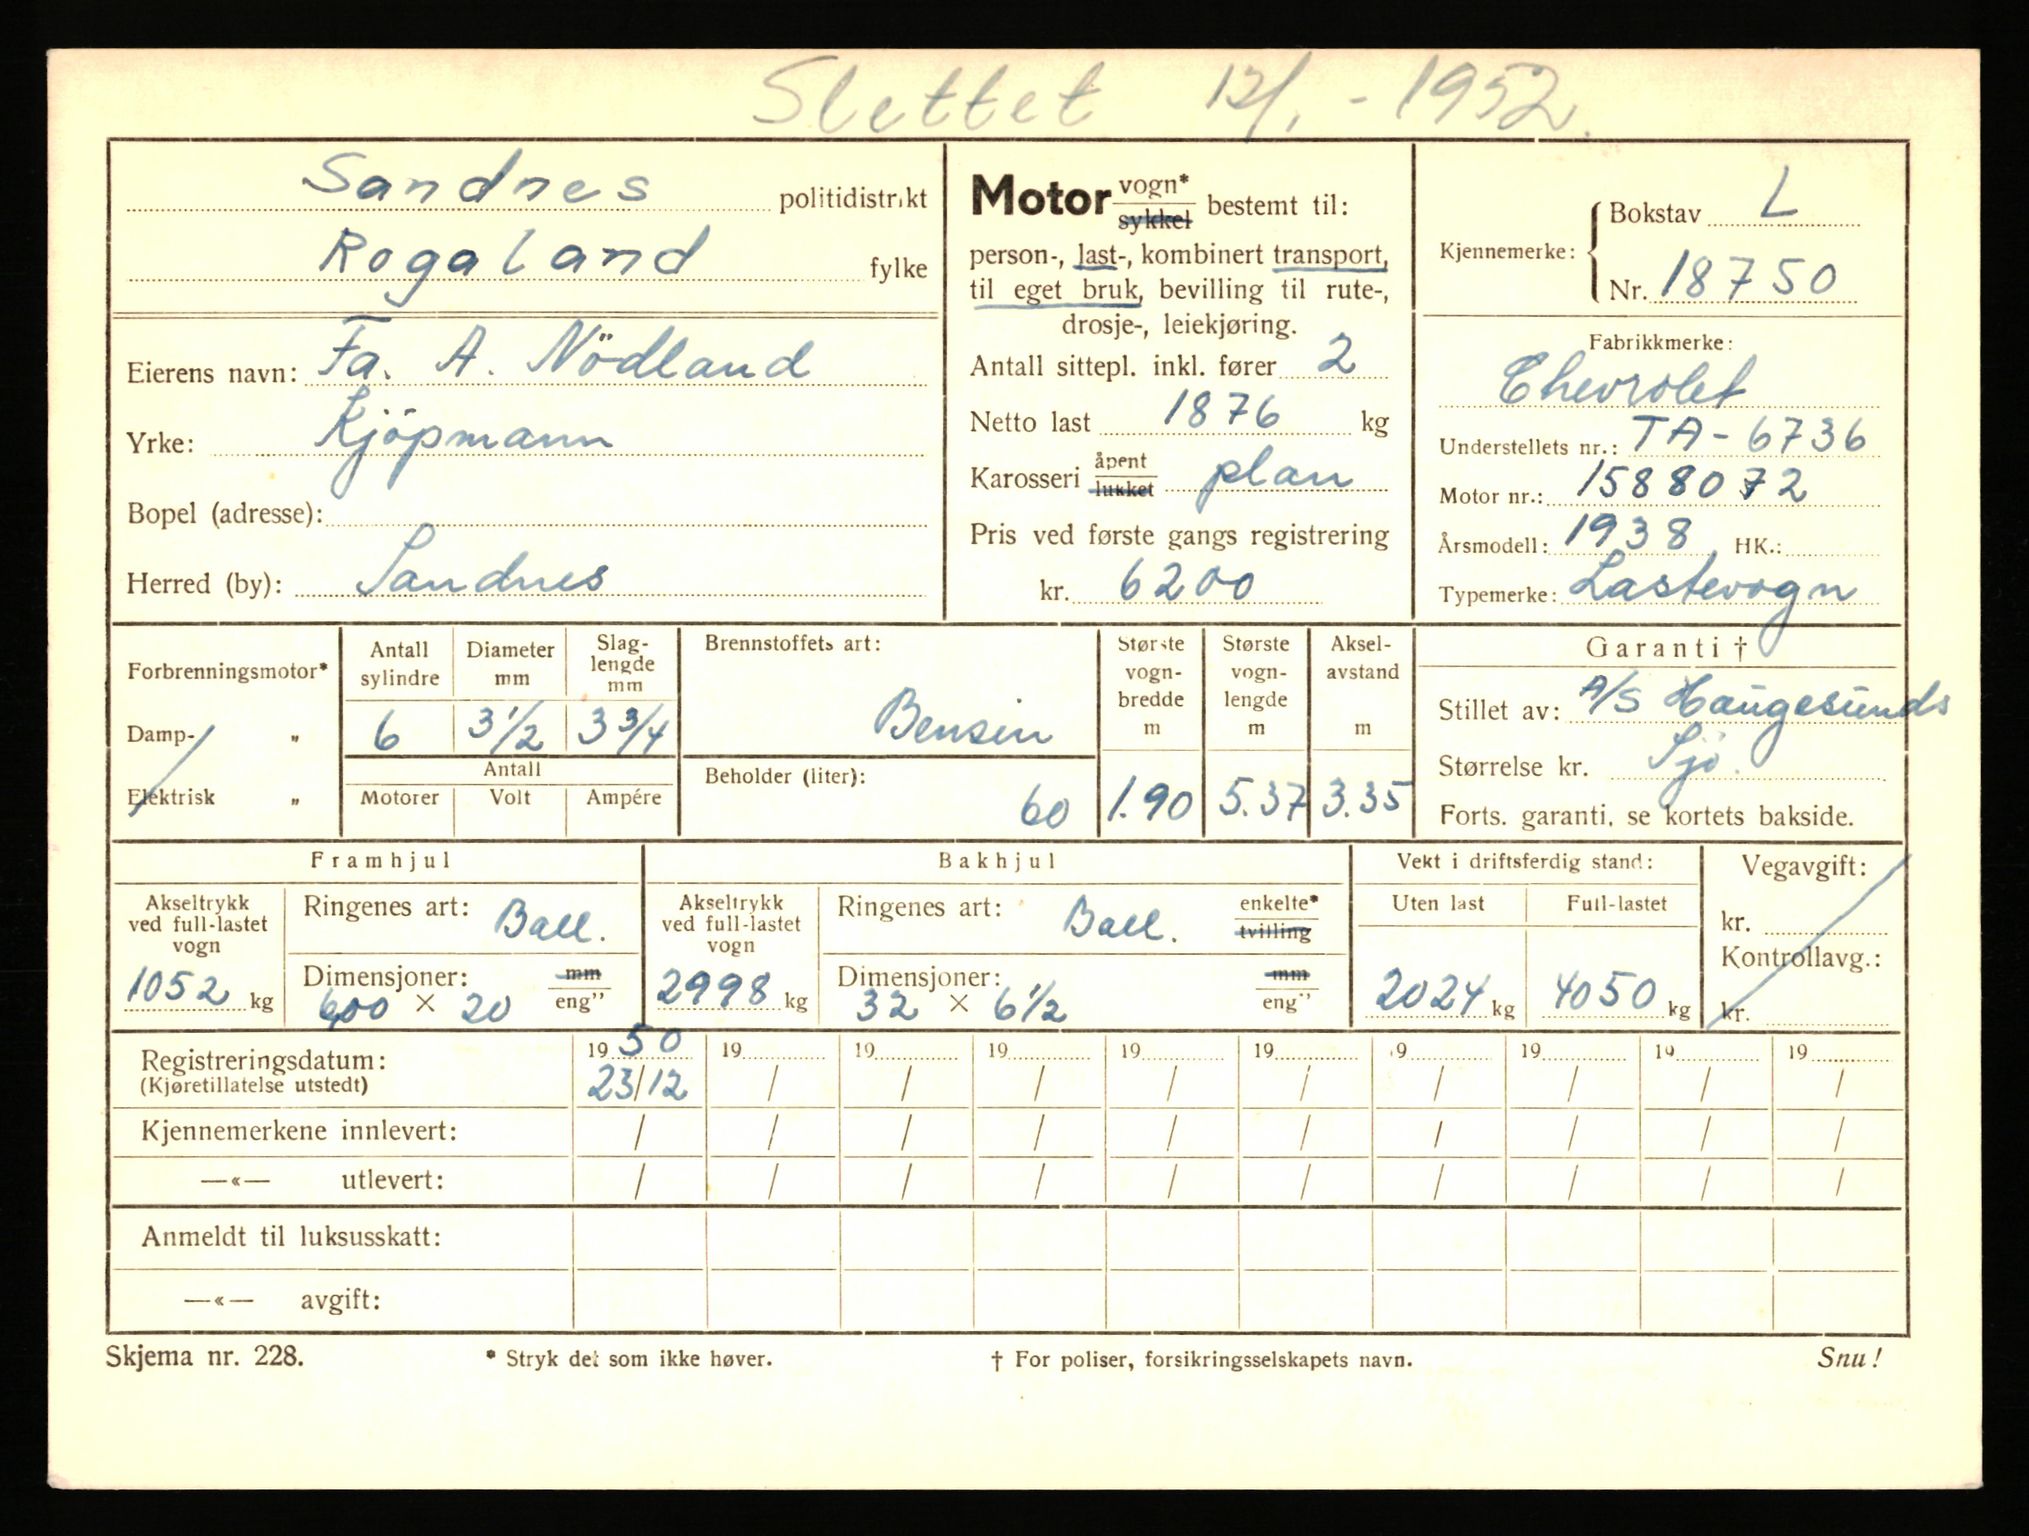 Slettet 12/1. - 1952.
Sandnes politidistrikt
Rogaland fylke
Eierens navn: Fa. A. Nödland
Yrke: Kjöpmann
Bopel (adresse):
Herred (by): Sandnes
Motor vogn* sykkel bestemt til:
person-, last-, kombinert transport,
til eget bruk, bevilling til rute-,
drosje-, leiekjøring.
Antall sittepl. inkl. fører 2
Netto last 1876 kg
Karosseri åpent lukket plan
Pris ved første gangs registrering
kr. 6200
Kjennemerke: Bokstav L
Nr. 18750
Fabrikkmerke:
Chevrolet
Understellets nr.: TA-6736
Motor nr.: 1588072
Årsmodell: 1938 HK.:
Typemerke: Lastevogn
Forbrenningsmotor*
Damp- „
Elektrisk „
Antall sylindre Diameter mm Slag-lengde mm
6 3 1/2 3 3/4
Antall
Motorer Volt Ampére
Brennstoffets art:
Bensin
Beholder (liter):
60
Største vogn-bredde m Største vogn-lengde m Aksel-avstand m
1.90 5.37 3.35
Garanti †
Stillet av: A/S Haugesunds
Størrelse kr. Sjö.
Forts. garanti, se kortets bakside.
Framhjul
Akseltrykk ved full-lastet vogn
1052 kg
Ringenes art: Ball.
Dimensjoner: mm
600 × 20 eng"
Bakhjul
Akseltrykk ved full-lastet vogn
2998 kg
Ringenes art: Ball. enkelte* tvilling
Dimensjoner: mm
32 × 6 1/2 eng"
Vekt i driftsferdig stand:
Uten last Full-lastet
2024 kg 4050 kg
Vegavgift:
kr.
Kontrollavg.:
kr.
Registreringsdatum: 1950 19 19 19 19 19 19 19 19 19
(Kjøretillatelse utstedt) 23/12 / / / / / / / / /
Kjennemerkene innlevert: / / / / / / / / / /
—«— utlevert: / / / / / / / / / /
Anmeldt til luksusskatt:
—«— avgift:
Skjema nr. 228. * Stryk det som ikke høver. † For poliser, forsikringsselskapets navn. Snu!